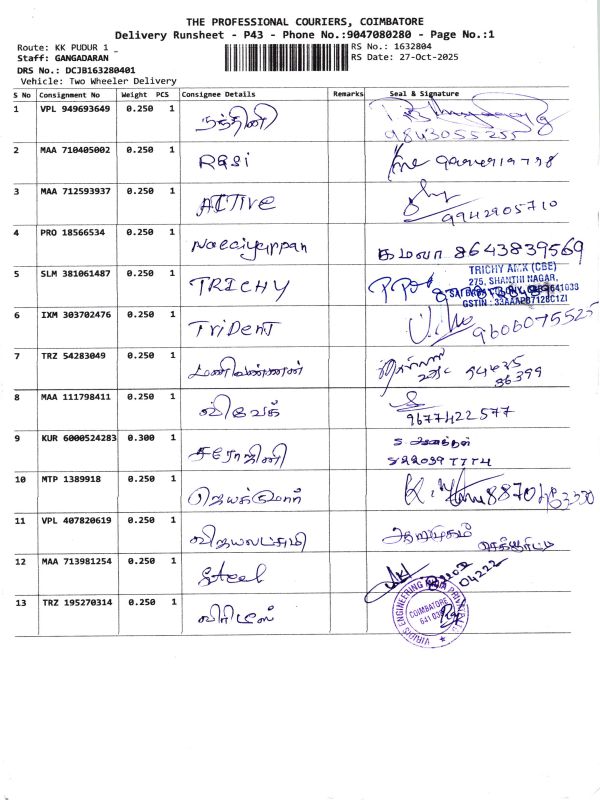 THE PROFESSIONAL COURIERS, COIMBATORE
Delivery Runsheet - P43 - Phone No.:9047080280 - Page No.:1
Route: KK PUDUR 1
RS No.: 1632804
Staff: GANGADARAN
RS Date: 27-Oct-2025
DRS No.: DCJB163280401
Vehicle: Two Wheeler Delivery
S No Consignment No Weight PCS Consignee Details Remarks Seal & Signature
1 VPL 949693649 0.250 1 நந்தினி
9843055255
2 MAA 710405002 0.250 1 Rasi
3 MAA 712593937 0.250 1 ACTIVE
9942905710
4 PRO 18566534 0.250 1 கமலா 8643839569
5 SLM 381061487 0.250 1 TRICHY
TRICHY (CBE)
275, SHANTHI NAGAR,
6 IXM 303702476 0.250 1 TriDENT 9606075525
7 TRZ 54283049 0.250 1 மணிவண்ணன்
8 MAA 111798411 0.250 1 விவேக் 9677422577
9 KUR 6000524283 0.300 1 சரோஜினி
10 MTP 1389918 0.250 1 ஜெயக்குமார்
11 VPL 407820619 0.250 1 விஜயலட்சுமி ஆறுமுகம்
12 MAA 713981254 0.250 1 Steel
04222
13 TRZ 195270314 0.250 1
COIMBATORE